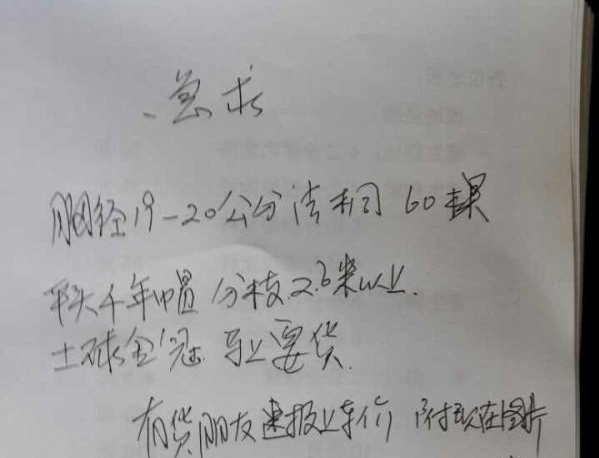 急求
胸径19-20公分法桐60棵
平头千年帽 分枝2.6米以上.
土球全冠 马上要货.
有货朋友速报上车价 附现在图片